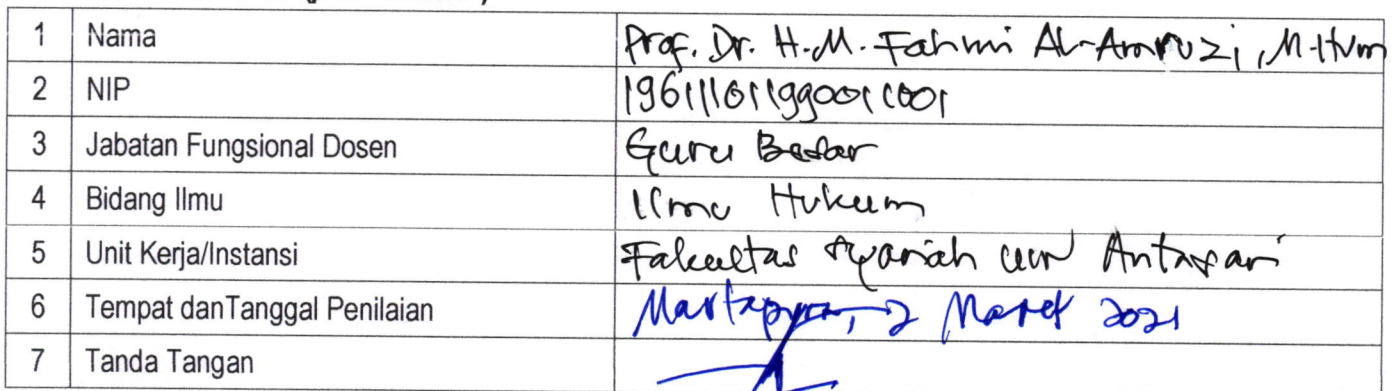 1 Nama Prof. Dr. H. M. Fahmi Al-Amruzi, M.Hum
2 NIP 196111011990011001
3 Jabatan Fungsional Dosen Guru Besar
4 Bidang Ilmu Ilmu Hukum
5 Unit Kerja/Instansi Fakultas Syariah UIN Antasari
6 Tempat danTanggal Penilaian Martapura, 2 Maret 2021
7 Tanda Tangan